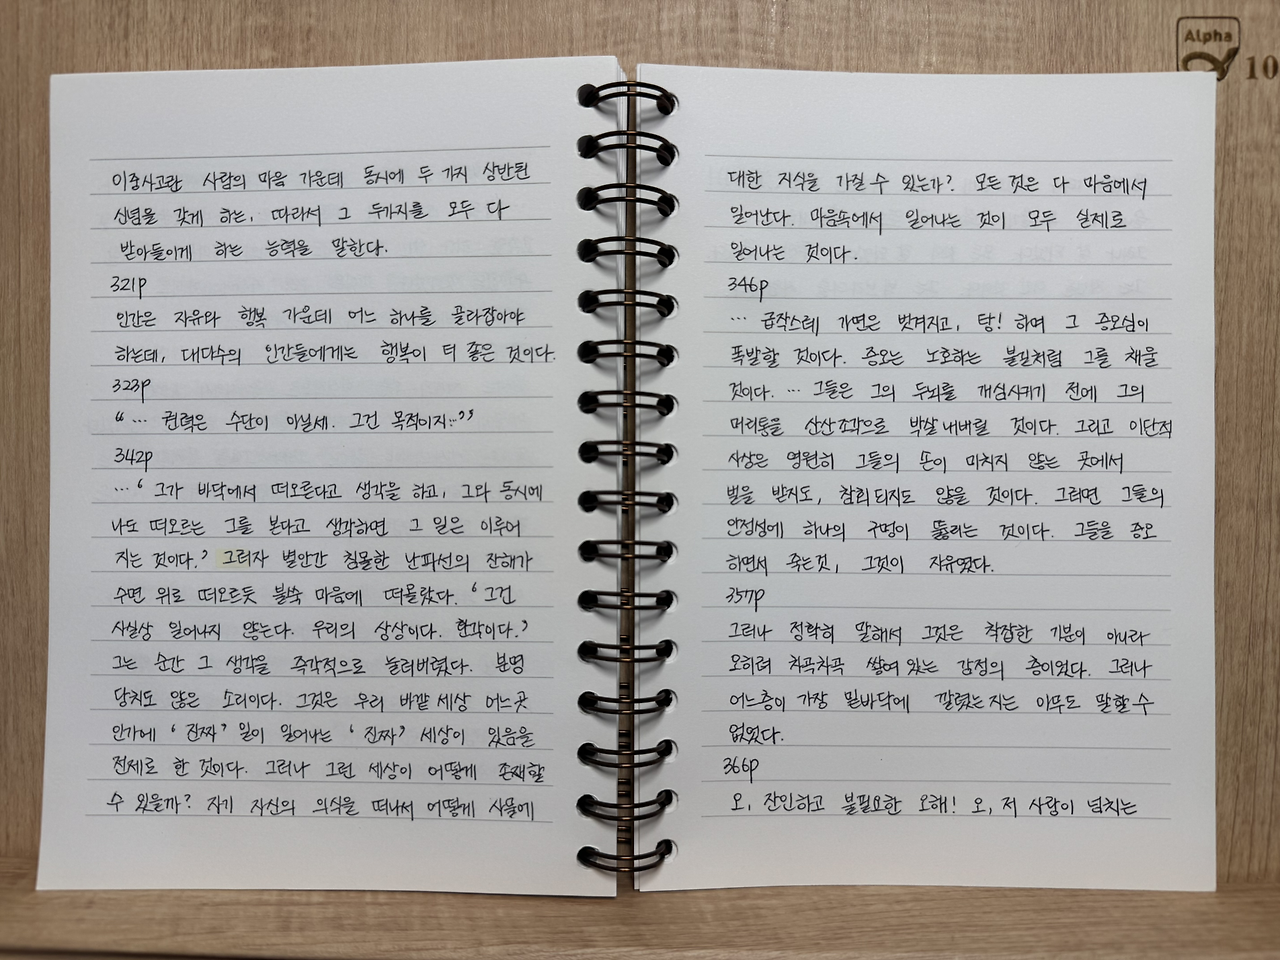 이중사고란 사람의 마음 가운데 동시에 두 가지 상반된
신념을 갖게 하는, 따라서 그 두가지를 모두 다
받아들이게 하는 능력을 말한다.
321p
인간은 자유와 행복 가운데 어느 하나를 골라잡아야
하는데, 대다수의 인간들에게는 행복이 더 좋은 것이다.
323p
“… 권력은 수단이 아닐세. 그건 목적이지…”
342p
…‘ 그가 바닥에서 떠오른다고 생각을 하고, 그와 동시에
나도 떠오르는 그를 본다고 생각하면 그 일은 이루어
지는 것이다.’ 그러자 별안간 침몰한 난파선의 잔해가
수면 위로 떠오르듯 불쑥 마음에 떠올랐다. ‘그건
사실상 일어나지 않는다. 우리의 상상이다. 환각이다.’
그는 순간 그 생각을 즉각적으로 눌러버렸다. 분명
당치도 않은 소리이다. 그것은 우리 바깥 세상 어느곳
안가에 ‘진짜’ 일이 일어나는 ‘진짜’ 세상이 있음을
전제로 한 것이다. 그러나 그런 세상이 어떻게 존재할
수 있을까? 자기 자신의 의식을 떠나서 어떻게 사물에
대한 지식을 가질 수 있는가? 모든 것은 다 마음에서
일어난다. 마음속에서 일어나는 것이 모두 실제로
일어나는 것이다.
346p
… 급작스레 가면은 벗겨지고, 탕! 하며 그 증오심이
폭발할 것이다. 증오는 노호하는 불길처럼 그를 채울
것이다. … 그들은 그의 두뇌를 개심시키기 전에 그의
머리통을 산산조각으로 박살내버릴 것이다. 그리고 이단적
사상은 영원히 그들의 손이 미치지 않는 곳에서
벌을 받지도, 참회되지도 않을 것이다. 그러면 그들의
안정성에 하나의 구멍이 뚫리는 것이다. 그들을 증오
하면서 죽는것, 그것이 자유였다.
357p
그러나 정확히 말해서 그것은 착잡한 기분이 아니라
오히려 차곡차곡 쌓여있는 감정의 층이었다. 그러나
어느층이 가장 밑바닥에 깔렸는지는 아무도 말할 수
없었다.
366p
오, 잔인하고 불필요한 오해! 오, 저 사랑이 넘치는
Alpha
10